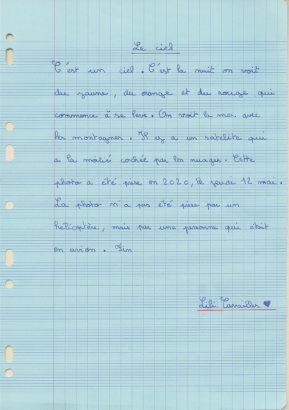 Le ciel
C'est un ciel. C'est la nuit on voit
du jaune, du orange et du rouge qui
commence à se lever. On voit la mer avec
les montagnes. Il y a un satélite qui
a la moitié cachée par les nuages. Cette
photo a été prise en 2020, le jeudi 12 mai.
La photo n'a pas été prise par un
hélicoptère, mais par une personne qui était
en avion. Fin
Lili